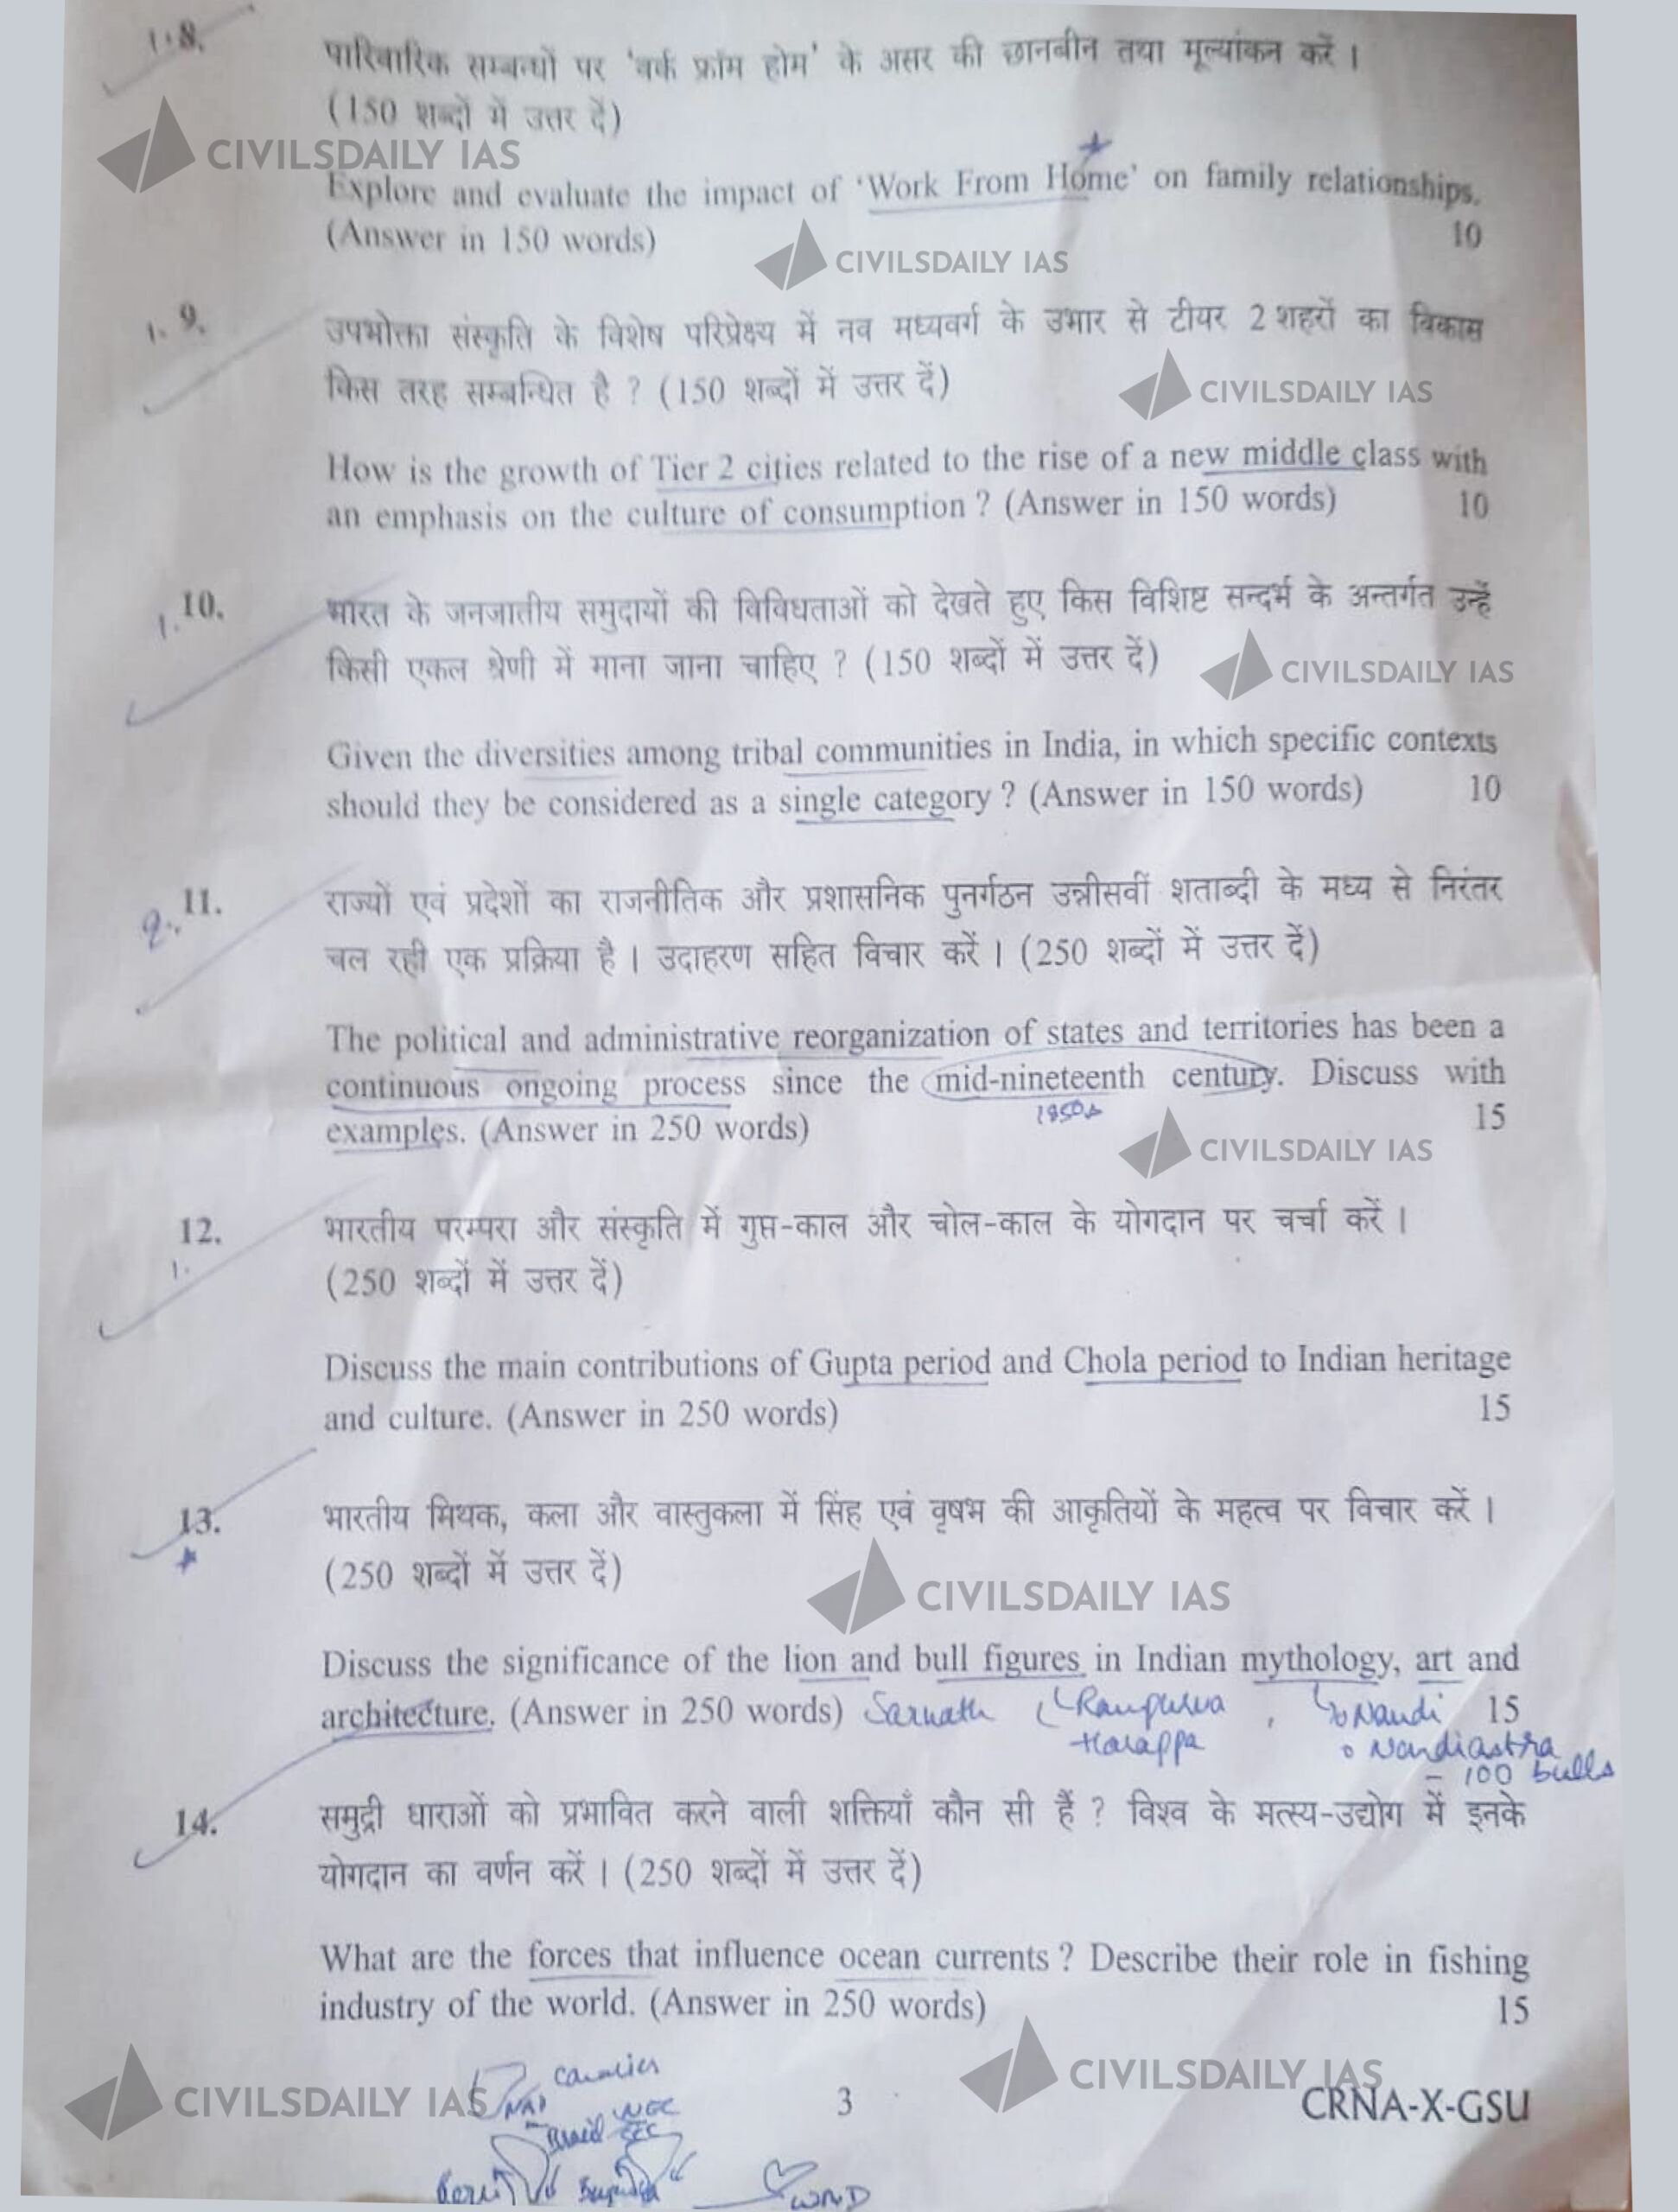 8.
पारिवारिक सम्बन्धों पर 'वर्क फ्रॉम होम' के असर की छानबीन तथा मूल्यांकन करें ।
(150 शब्दों में उत्तर दें)
CIVILSDAILY IAS
Explore and evaluate the impact of 'Work From Home' on family relationships.
(Answer in 150 words) 10
CIVILSDAILY IAS
1. 9. उपभोक्ता संस्कृति के विशेष परिप्रेक्ष्य में नव मध्यवर्ग के उभार से टीयर 2 शहरों का विकास
किस तरह सम्बन्धित है ? (150 शब्दों में उत्तर दें)
CIVILSDAILY IAS
How is the growth of Tier 2 cities related to the rise of a new middle class with
an emphasis on the culture of consumption ? (Answer in 150 words) 10
1. 10. भारत के जनजातीय समुदायों की विविधताओं को देखते हुए किस विशिष्ट सन्दर्भ के अन्तर्गत उन्हें
किसी एकल श्रेणी में माना जाना चाहिए ? (150 शब्दों में उत्तर दें)
CIVILSDAILY IAS
Given the diversities among tribal communities in India, in which specific contexts
should they be considered as a single category ? (Answer in 150 words) 10
2. 11. राज्यों एवं प्रदेशों का राजनीतिक और प्रशासनिक पुनर्गठन उन्नीसवीं शताब्दी के मध्य से निरंतर
चल रही एक प्रक्रिया है । उदाहरण सहित विचार करें । (250 शब्दों में उत्तर दें)
The political and administrative reorganization of states and territories has been a
continuous ongoing process since the mid-nineteenth century. Discuss with
1850s
examples. (Answer in 250 words) 15
CIVILSDAILY IAS
12. भारतीय परम्परा और संस्कृति में गुप्त-काल और चोल-काल के योगदान पर चर्चा करें ।
1.
(250 शब्दों में उत्तर दें)
Discuss the main contributions of Gupta period and Chola period to Indian heritage
and culture. (Answer in 250 words) 15
13. भारतीय मिथक, कला और वास्तुकला में सिंह एवं वृषभ की आकृतियों के महत्व पर विचार करें ।
(250 शब्दों में उत्तर दें)
CIVILSDAILY IAS
Discuss the significance of the lion and bull figures in Indian mythology, art and
architecture. (Answer in 250 words) Sarnath Rampurva , Nandi 15
Harappa Nandiastra
– 100 bulls
14. समुद्री धाराओं को प्रभावित करने वाली शक्तियाँ कौन सी हैं ? विश्व के मत्स्य-उद्योग में इनके
योगदान का वर्णन करें । (250 शब्दों में उत्तर दें)
What are the forces that influence ocean currents ? Describe their role in fishing
industry of the world. (Answer in 250 words) 15
CIVILSDAILY IAS
3
CIVILSDAILY IAS
CRNA-X-GSU